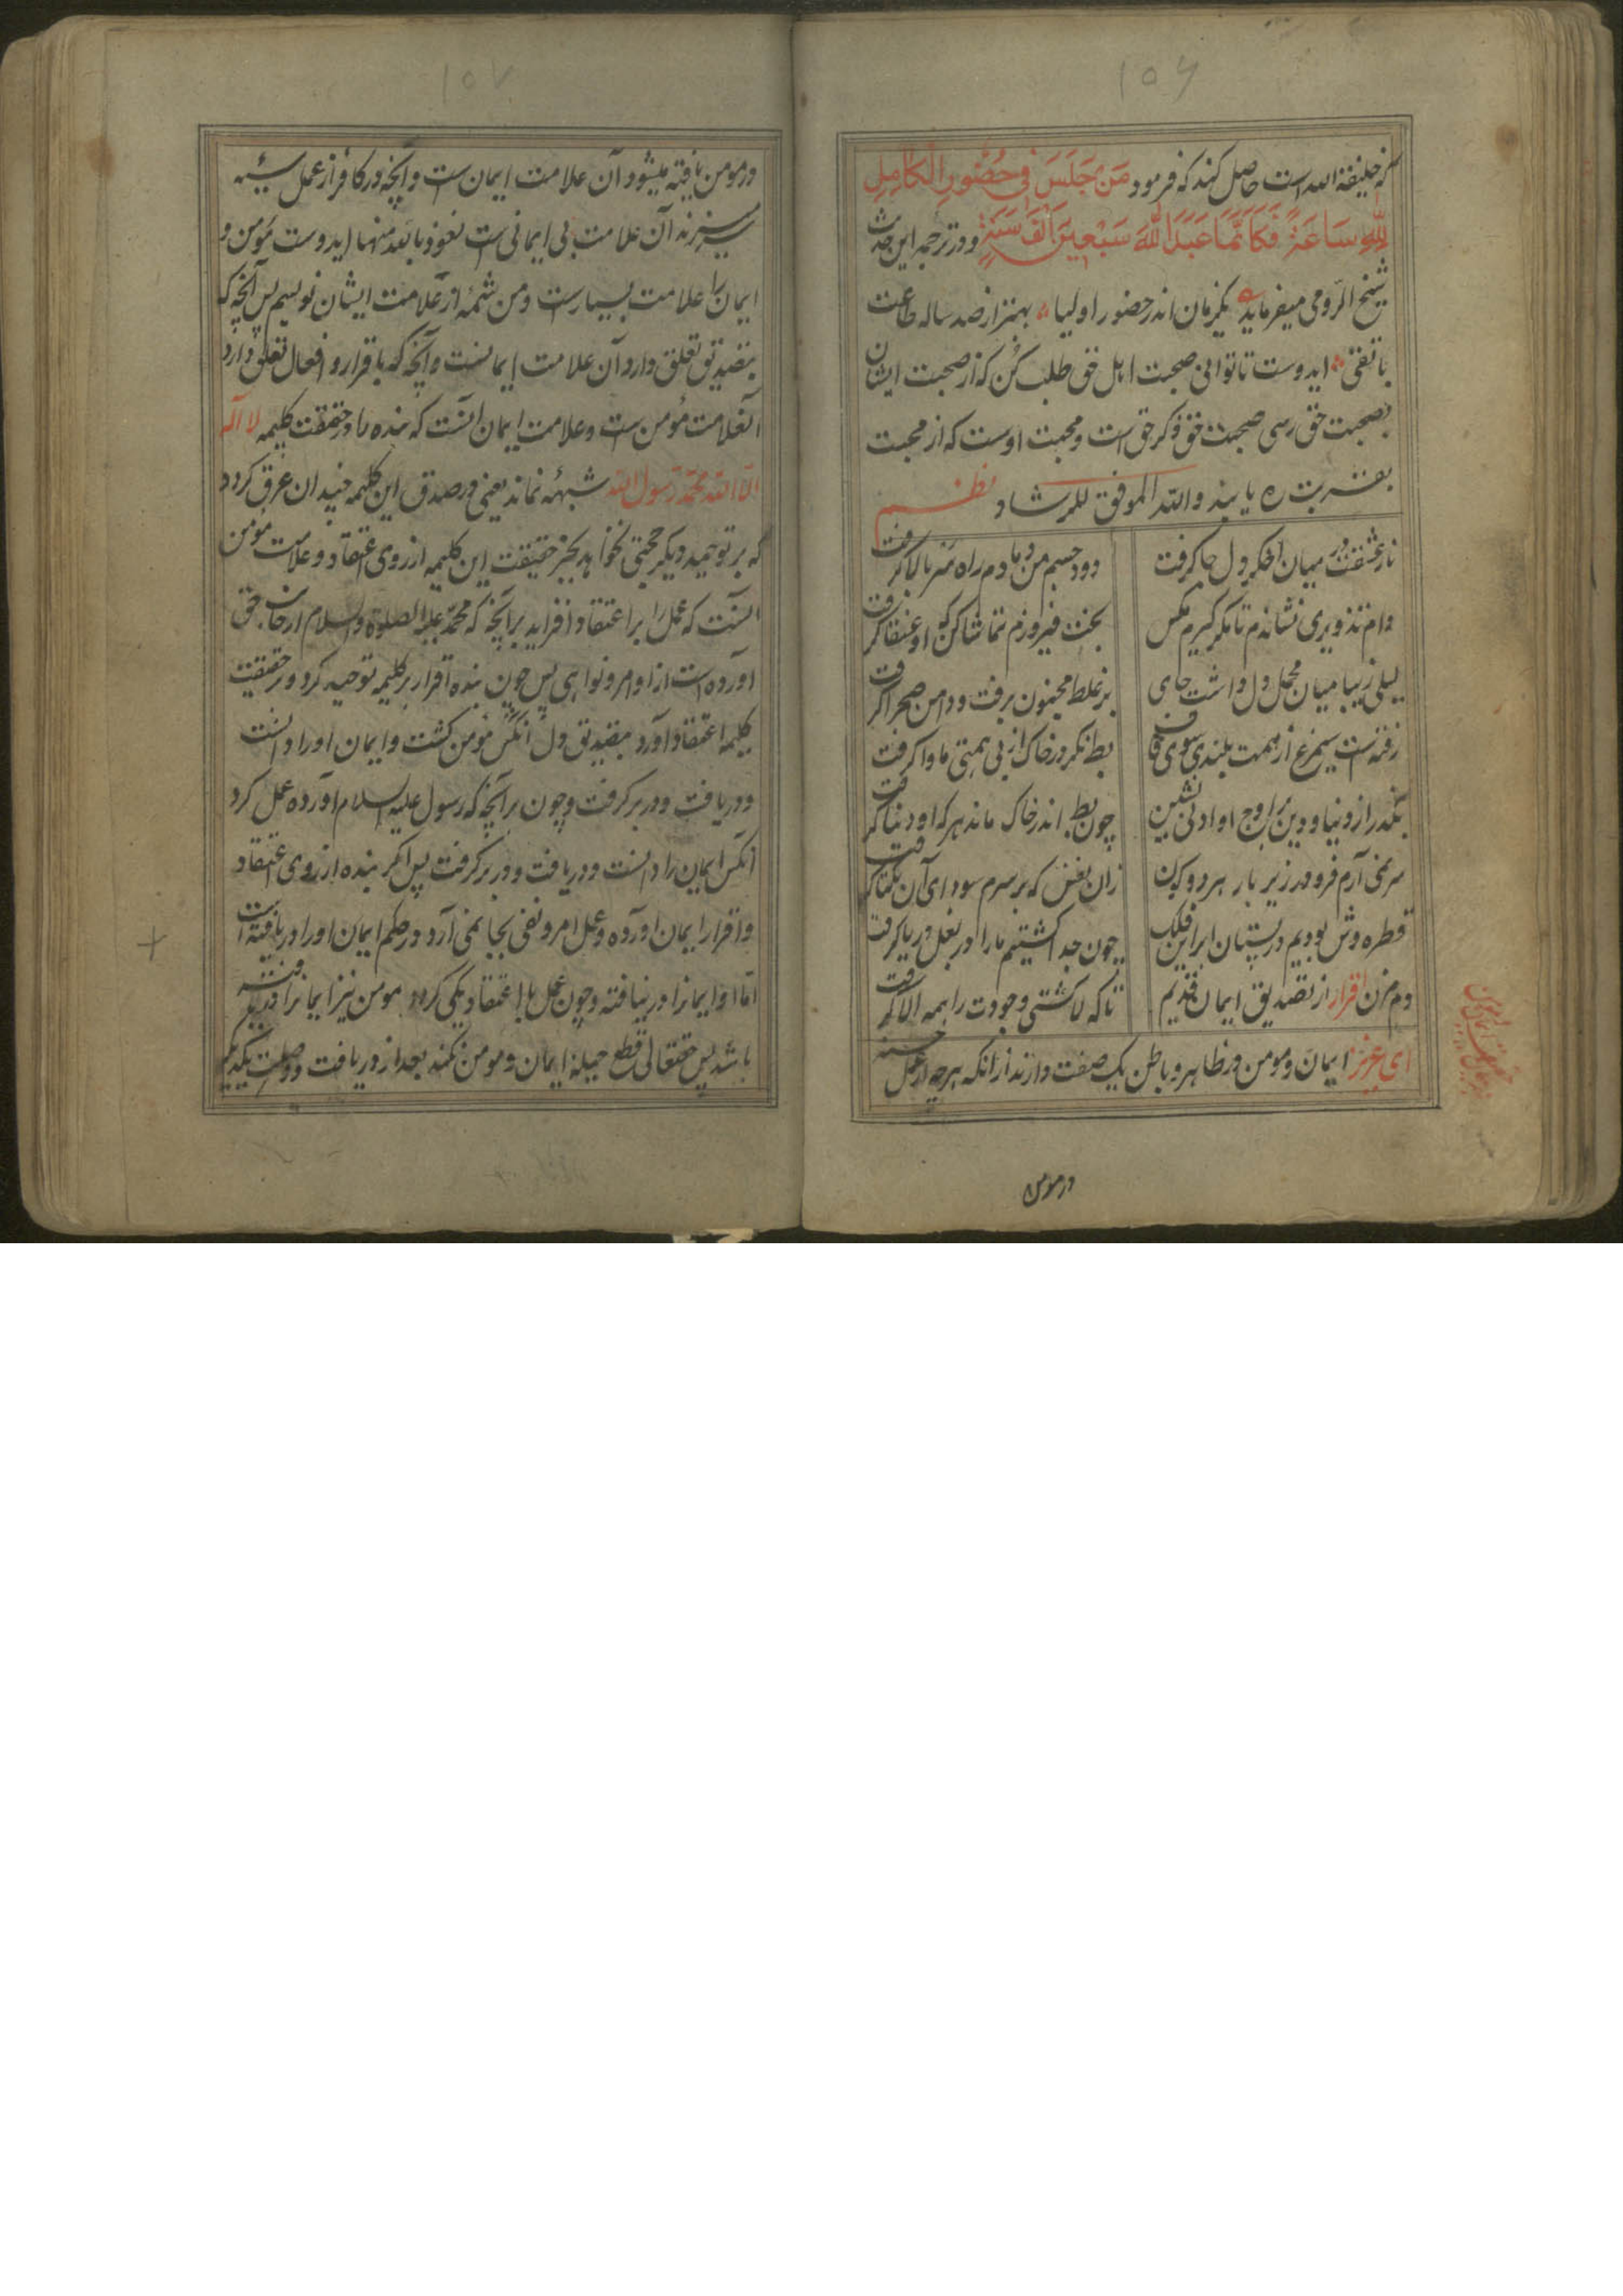 ۱۵۶
که خلیفة الله است حاصل کند که فرمود مَن جَلَسَ فِی حُضُورِ الْکَامِلِ
لِلّٰهِ سَاعَةً فَکَاَنَّمَا عَبَدَ اللّٰهَ سَبْعِینَ اَلْفَ سَنَةٍ و در ترجمه این حدیث
شیخ الرومی میفرماید یکزمان اندر حضور اولیا بهتر از صد ساله طاعت
با تقی ایدوست تا توانی صحبت اهل حق طلب کن که از صحبت ایشان
بصحبت حق رسی صحبت حق ذکر حق است و محبت اوست که از محبت
بقربت ره یابند والله الموفق للرشاد نظم
نار عشقت در میان اخگر دل جا گرفت
دود جسم من دمادم راه سر بالا گرفت
دام تذویری نشاندم تا مگر گیرم مگس
بخت فیروزم تماشا کن که او عنقا گرفت
لیلی زیبا میان محمل دل داشت جای
بر غلط مجنون برفت و دامن صحرا گرفت
رفته است سیمرغ از همت بلندی سوی قاف
بط نگر در خاک از بی همتی ماوا گرفت
بگذر از دنیا و دین بر اوج او ادنی نشین
چون بط اندر خاک ماند هر که او دنیا گرفت
سر نمی آرم فرو در زیر بار هر دو کون
زان نفس که بر سرم سودای آن یکتا گرفت
قطره وش بودیم در پستان ابر این فلک
چون جدا گشتیم ما را در بغل دریا گرفت
دم مزن اقرار از تصدیق ایمان قدیم
تا که لا گشتی وجودت را همه الا گرفت
ای عزیز ایمان و مومن در ظاهر و باطن یک صفت دارند از انکه هرچه از عمل حسنه
در مومن
۱۵۷
در مومن یافته میشود آن علامت ایمان است و آنچه در کافر از عمل سیئه
سر میزند آن علامت بی ایمانی است نعوذ بالله منها ایدوست مومن و
ایمان را علامت بسیارست و من شمه از علامت ایشان نویسم پس آنچه که
بتصدیق تعلق دارد آن علامت ایمانست و آنچه که باقرار و افعال تعلق دارد
آنعلامت مومن ست و علامت ایمان آنست که بنده را در حقیقت کلیمه لا اله
الا الله محمد رسول الله شبهه نماند یعنی در صدق این کلیمه چندان غرق گردد
که بر توحید دیگر حجتی نخواهد بجز حقیقت این کلیمه از روی اعتقاد و علامت مومن
آنست که عمل را بر اعتقاد افزاید بر آنچه که محمد علیه الصلوة والسلام از جانب حق
آورده است از اوامر و نواهی پس چون بنده اقرار بر کلیمه توحید کرد و بر حقیقت
کلیمه اعتقاد آورد بتصدیق دل آنکس مومن گشت و ایمان او را دانست
و دریافت و در بر گرفت و چون بر آنچه که رسول علیه السلام آورده عمل کرد
آنکس ایمان را دانست و دریافت و در بر گرفت پس اگر بنده از روی اعتقاد
و اقرار ایمان آورده و عمل امر و نهی بجا نمی آرد در حکم ایمان او را دریافته است
اما او ایمانرا در نیافته و چون عمل با اعتقاد یکی کرد مومن نیز ایمانرا دریافته
باشد پس حقتعالی قطع حیله ایمان و مومن نکند بعد از دریافت و وصلت یکدیگر